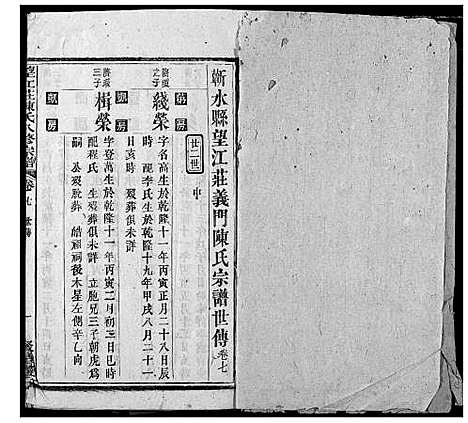 蘄水縣望江莊義門陳氏宗譜世傳 卷七
廿二世
中
之子
綫榮
字名高生於乾隆十一年丙寅正月二十八日辰
時 配李氏生於乾隆十九年甲戌八月二十一
日亥時 歿葬俱未詳
三子
楫榮
字登萬生於乾隆十一年丙寅二月初三日巳時
配程氏 生歿葬俱未詳 立胞兄三子朝虎為
嗣 公歿葬 皓 祠後木星左側辛乙向
房
房
望江莊陳氏八修宗譜
卷七 世傳
一